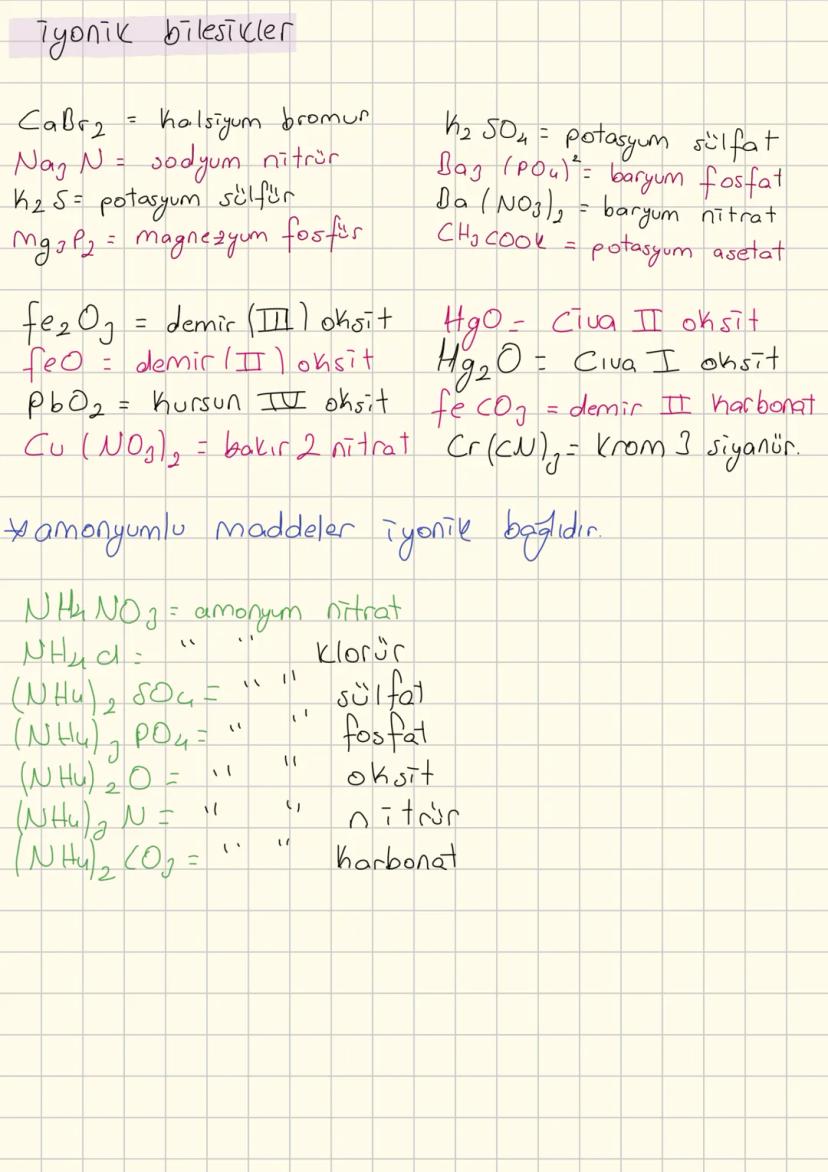 iyonik bilesikler
CaBr2 = kalsiyum bromur
Na3N = sodyum nitrür
K2S = potasyum sülfür
Mg3P2 = magnezyum fosfür
K2SO4 = potasyum sülfat
Ba3(PO4)2 = baryum fosfat
Ba(NO3)2 = baryum nitrat
CH3COOK = potasyum asetat
fe2O3 = demir (III) oksit
feO = demir (II) oksit
PbO2 = Kursun IV oksit
Cu(NO3)2 = bakır 2 nitrat
HgO = Civa II oksit
Hg2O = Cıva I oksit
feCO3 = demir II karbonat
Cr(CN)3 = Krom 3 siyanür.
* amonyumlu maddeler iyonik bağlıdır.
NH4NO3 = amonyum nitrat
NH4Cl = " " klorür
(NH4)2 SO4 = " " sülfat
(NH4)3 PO4 = " " fosfat
(NH4)2O = " " oksit
(NH4)3 N = " " nitrür
(NH4)2 CO3 = " " karbonat